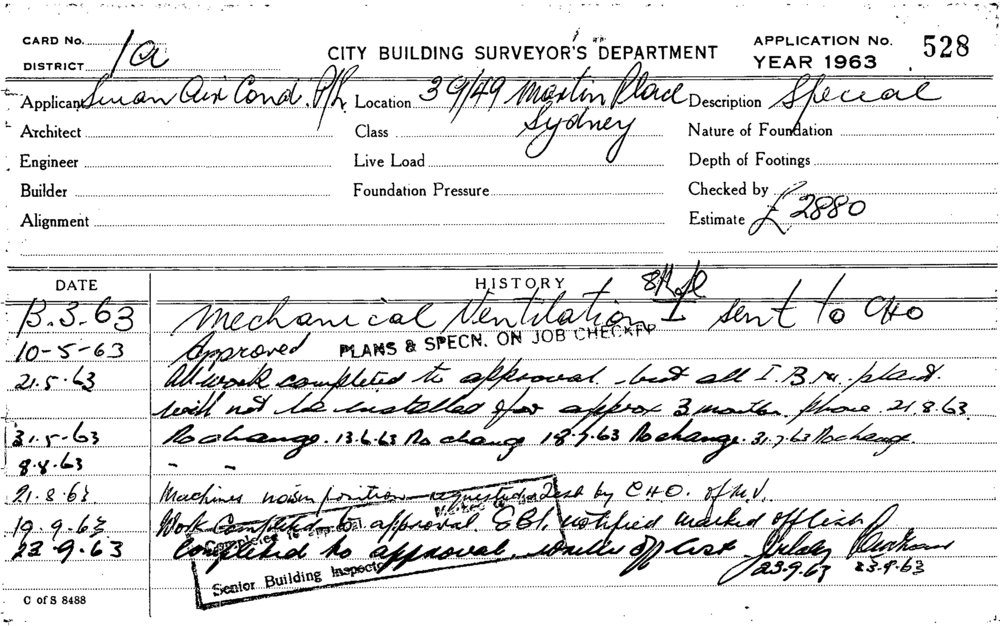 CARD No. 1a
DISTRICT
CITY BUILDING SURVEYOR'S DEPARTMENT
APPLICATION No. 528
YEAR 1963
Applicant Swan Air Cond. P/L Location 39/49 Martin Place Description Special
Sydney
Architect Class Nature of Foundation
Engineer Live Load Depth of Footings
Builder Foundation Pressure Checked by
Alignment Estimate £2880
DATE HISTORY
13.3.63 Mechanical Ventilation sent to CHO
10-5-63 Approved PLANS & SPECN. ON JOB CHECKED
21.5.63 All work completed to approval but all I.B.M. plant
will not be installed for approx 3 months. phone 21.8.63
31.5.63 No change. 13.6.63 No change 18.7.63 No change. 31.7.63 No change.
8.8.63 - -
21.8.63 Machines now in position requested test by CHO. of M.V.
19.9.63 Work Completed to approval. EBI. notified marked off list
23.9.63 Completed to approval. write off list
23.9.63 23.9.63
Senior Building Inspector
C of S 8488